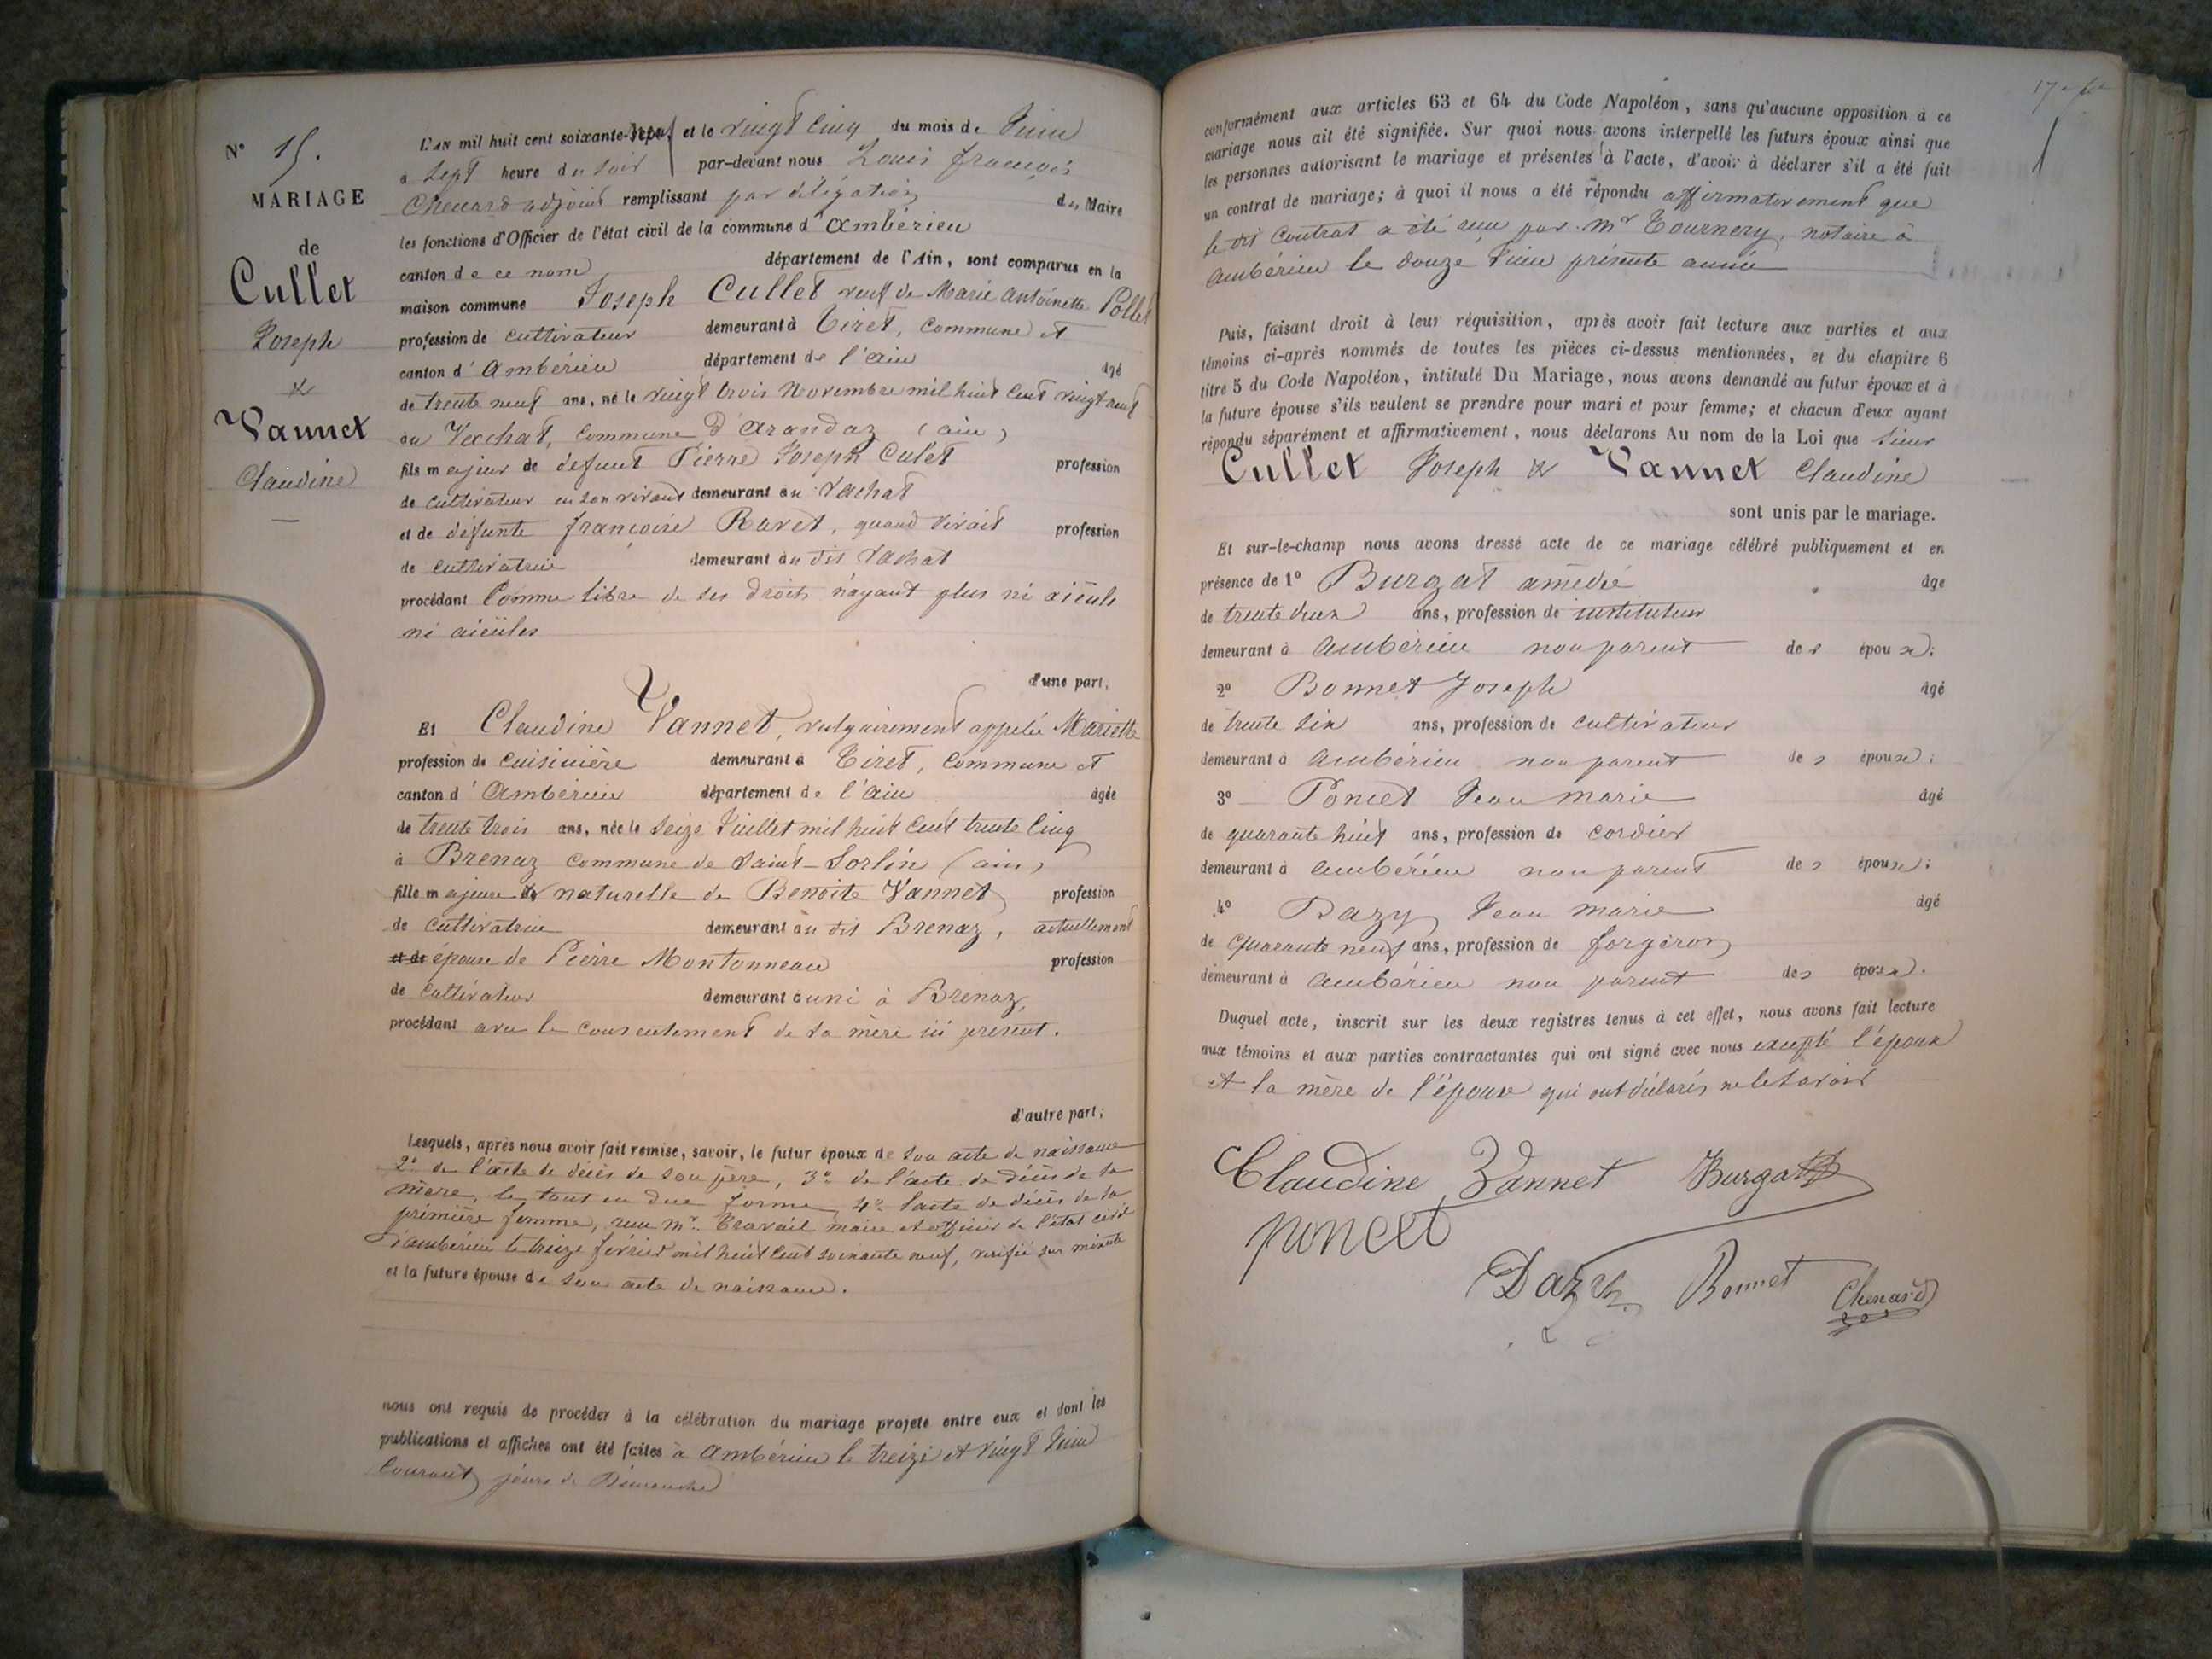 N° 15.
MARIAGE
de
Cullet
Joseph
&
Vannet
Claudine
L'an mil huit cent soixante-neuf et le vingt cinq du mois de Juin
à sept heure du soir par-devant nous Louis françois
Chenard adjoint remplissant par délégation du Maire
les fonctions d'Officier de l'état civil de la commune d'Ambérieu
canton de ce nom département de l'Ain, sont comparus en la
maison commune Joseph Cullet veuf de Marie Antoinette Pollet
profession de cultivateur demeurant à Tiret, commune et
canton d'Ambérieu département de l'ain âgé
de trente neuf ans, né le vingt trois Novembre mil huit cent vingt neuf
au Vachat, commune d'Arandaz (ain)
fils majeur de défunt Pierre Joseph Culet profession
de cultivateur en son vivant demeurant au Vachat
et de défunte françoise Ravet, quand vivait profession
de cultivatrice demeurant au dit Vachat
procédant comme libre de ses droits n'ayant plus ni aïeuls
ni aieüles
d'une part,
Et Claudine Vannet, vulgairement appelée Mariette
profession de cuisinière demeurant à Tiret, commune et
canton d'Ambérieu département de l'ain âgée
de trente trois ans, née le seize Juillet mil huit cent trente cinq
à Brenaz commune de Saint-Sorlin (ain)
fille majeure & naturelle de Benoite Vannet profession
de cultivatrice demeurant au dit Brenaz, actuellement
et de épouse de Pierre Montonneau profession
de cultivateur demeurant aussi à Brenaz,
procédant avec le consentement de sa mère ici present.
d'autre part;
Lesquels, après nous avoir fait remise, savoir, le futur époux de son acte de naissance
2° de l'acte de décès de son père, 3° de l'acte de décès de sa
mère, le tout en due forme, 4° l'acte de décès de la
première femme, reçu Mr. Travail maire et officier de l'état civil
d'ambérieu le treize février mil huit cent soixante neuf, vérifié sur minute
et la future épouse de son acte de naissance.
nous ont requis de procéder à la célébration du mariage projeté entre eux et dont les
publications et affiches ont été faites à Ambérieu le treize et vingt Juin
courant jours de Dimanche
conformément aux articles 63 et 64 du Code Napoléon, sans qu'aucune opposition à ce
mariage nous ait été signifiée. Sur quoi nous avons interpellé les futurs époux ainsi que
les personnes autorisant le mariage et présentes à l'acte, d'avoir à déclarer s'il a été fait
un contrat de mariage; à quoi il nous a été répondu affirmativement que
le dit contrat a été reçu par Mr Tournery, notaire à
ambérieu le douze Juin présente année
Puis, faisant droit à leur réquisition, après avoir fait lecture aux parties et aux
témoins ci-après nommés de toutes les pièces ci-dessus mentionnées, et du chapitre 6
titre 5 du Code Napoléon, intitulé Du Mariage, nous avons demandé au futur époux et à
la future épouse s'ils veulent se prendre pour mari et pour femme; et chacun d'eux ayant
répondu séparément et affirmativement, nous déclarons Au nom de la Loi que sieur
Cullet Joseph & Vannet Claudine
sont unis par le mariage.
Et sur-le-champ nous avons dressé acte de ce mariage célébré publiquement et en
présence de 1° Burgat amédée âge
de trente deux ans, profession de instituteur
demeurant à Ambérieu non parent des époux;
2° Bonnet Joseph âgé
de trente six ans, profession de cultivateur
demeurant à ambérieu non parent des époux;
3° Poncet Jean marie âgé
de quarante huit ans, profession de cordier
demeurant à ambérieu non parent des époux;
4° Dazy Jean marie âgé
de quarante neuf ans, profession de forgeron
demeurant à ambérieu non parent des époux.
Duquel acte, inscrit sur les deux registres tenus à cet effet, nous avons fait lecture
aux témoins et aux parties contractantes qui ont signé avec nous excepté l'époux
et la mère de l'épouse qui ont déclarés ne le savoir
Claudine Vannet Burgat
poncet
Dazy Bonnet Chenard